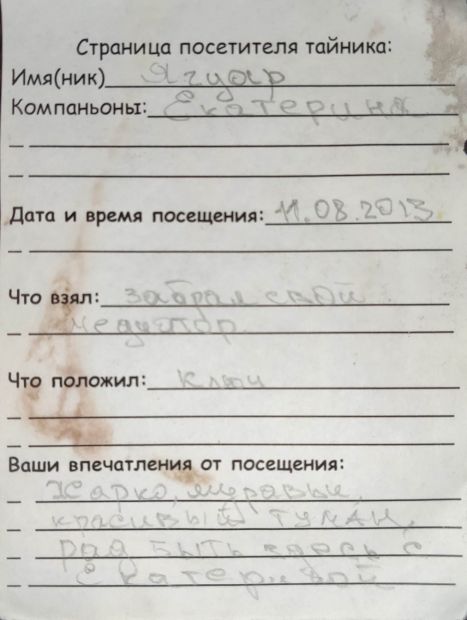 Страница посетителя тайника:
Имя(ник) Ягуар
Компаньоны: Екатерина
Дата и время посещения: 11.08.2013
Что взял: забрал свой
медиатор
Что положил: Ключ
Ваши впечатления от посещения:
Жарко, муравьи,
красивый туман,
рад быть здесь с
Екатериной